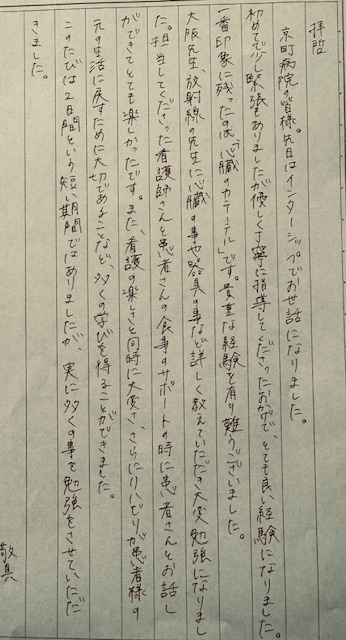 拝啓
京町病院の皆様。先日はインターシップでお世話になりました。
初めてで少し緊張もありましたが優しく丁寧に指導してくださったおかげで、とても良い経験になりました。
一番印象に残ったのは「心臓のカテーテル」です。貴重な経験を有り難うございました。
大阪先生、放射線の先生に心臓の事や器具の事など詳しく教えていただき大変勉強になりまし
た。担当してくださった看護師さんと患者さんの食事のサポートの時に患者さんとお話し
ができてとても楽しかったです。また、看護の楽しさと同時に大変さ、さらにリハビリが患者様の
元の生活に戻すために大切であることなど、多くの学びを得ることができました。
このたびは2日間という短い期間ではありましたが、実に多くの事を勉強をさせていただ
きました。
敬具